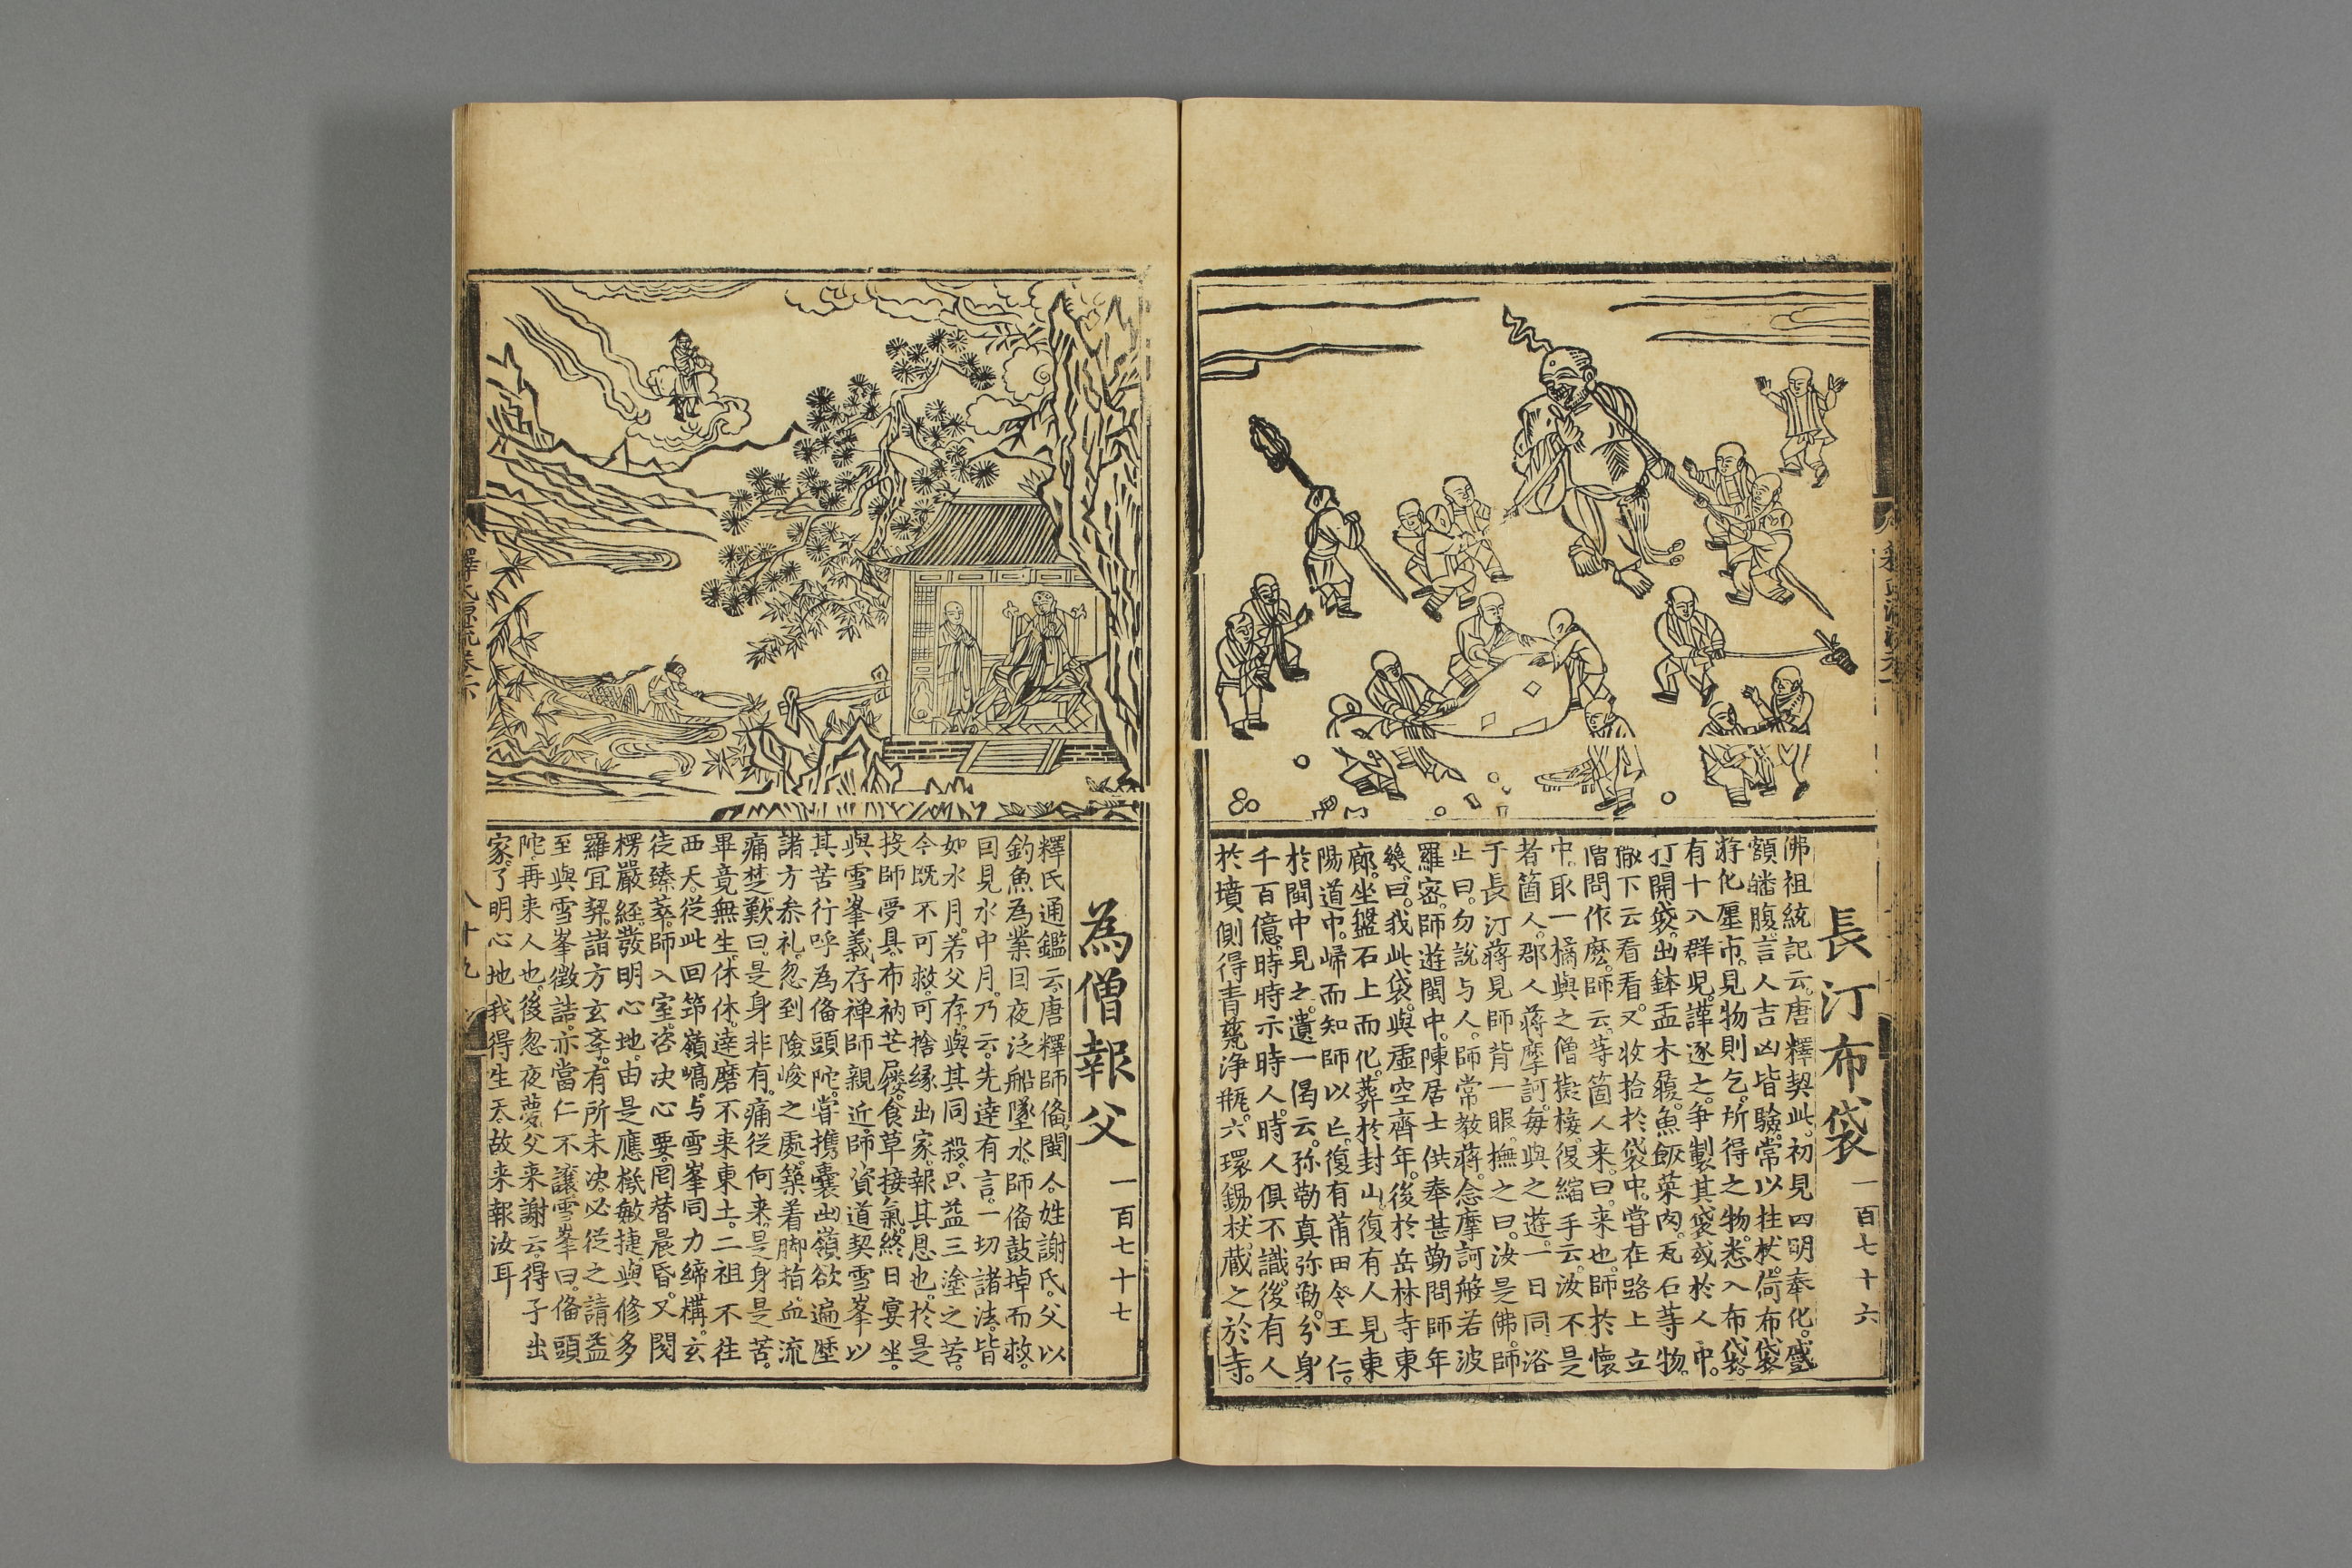 長汀布袋 一百七十六
佛祖統記云。唐釋契此。初見四明奉化。蹙
額皤腹。言人吉凶皆驗。常以拄杖。荷布袋
游化㕓市。見物則乞。所得之物。悉入布袋。
有十八群児。譁逐之。争製其袋。或於人中。
打開袋。出鉢盂木履。魚飯菜肉。瓦石等物。
撒下云看看。又收拾於袋中。甞在路上立
僧問作麽。師云。等箇人来。曰。来也。師於懷
中。取一橘與之僧擬接。復縮手云。汝不是
者箇人。郡人蒋摩訶。每與之遊。一日同浴
于長汀蒋見師背一眼。撫之曰。汝是佛。師
止曰。勿說与人。師常教蒋。念摩訶般若波
羅宻。師遊閩中。陳居士供奉甚勤問師年
幾。曰。我此袋。與虛空齊年。後於岳林寺東
廊。坐盤石上而化。葬於封山。復有人見東
陽道中。歸而知師以亡。復有莆田令王仁。
於閩中見之。遺一偈云。弥勒真弥勒。分身
千百億。時時示時人。時人俱不識。後有人
於墳側得青甆浄瓶。六環錫杖。蔵之於寺。
為僧報父 一百七十七
釋氏通鑑云。唐釋師俻。閩人。姓謝氏。父以
釣魚為業因夜泛船墜水。師俻鼓掉而救。
因見水中月。乃云。先逹有言。一切諸法。皆
如水月。若父存。與其同殺。只益三塗之苦。
今既不可救。可捨縁出家。報其恩也。於是
投師夢具。布衲芒屨。食草接氣。終日宴坐。
與雪峯義存禅師親近。師資道契雪峯以
其苦行呼為俻頭陀。甞攜囊出嶺欲遍歷
諸方叅礼。忽到險峻之處。築着脚指。血流
痛楚歎曰。是身非有。痛從何来。是身是苦。
畢竟無生。休休。逹磨不来東土。二祖不往
西天。從此回笻嶺嶠。与雪峯同力締構。玄
徒臻萃。師入室。咨决心要。罔替晨昏。又閱
楞嚴經。發明心地。由是應機敏捷。與修多
羅冝契。諸方玄斈。有所未决。必從之請益
至與雪峯徵詰。亦當仁不讓雪峯曰。俻頭
陀。再来人也。後忽夜夢父来謝云。得子出
家。了明心地我得生天。故来報汝耳
釋氏源流卷六
八十九